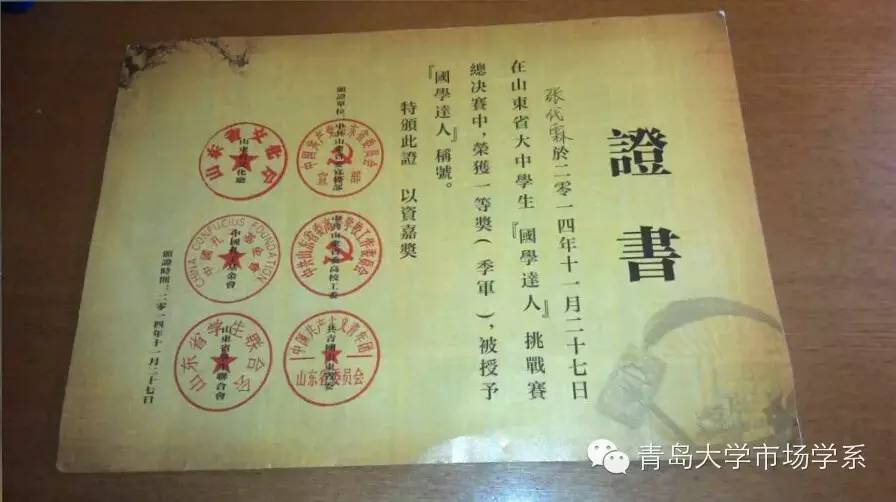 證書
張代霖於二零一四年十一月二十七日
在山東省大中學生『國學達人』挑戰賽
總决賽中，榮獲一等獎（季軍），被授予
『國學達人』稱號。
特頒此證 以資嘉獎
頒證單位：中共山東省委宣傳部
中共山東省委高校工委
共青團山東省委
山東省文化廳
中國孔子基金會
山東省學生聯合會
頒證時間：二零一四年十一月二十七日
山东省文化厅
CHINA CONFUCIUS FOUNDATION
山东省学生联合会
中国共产主义青年团
山东省委员会
青岛大学市场学系